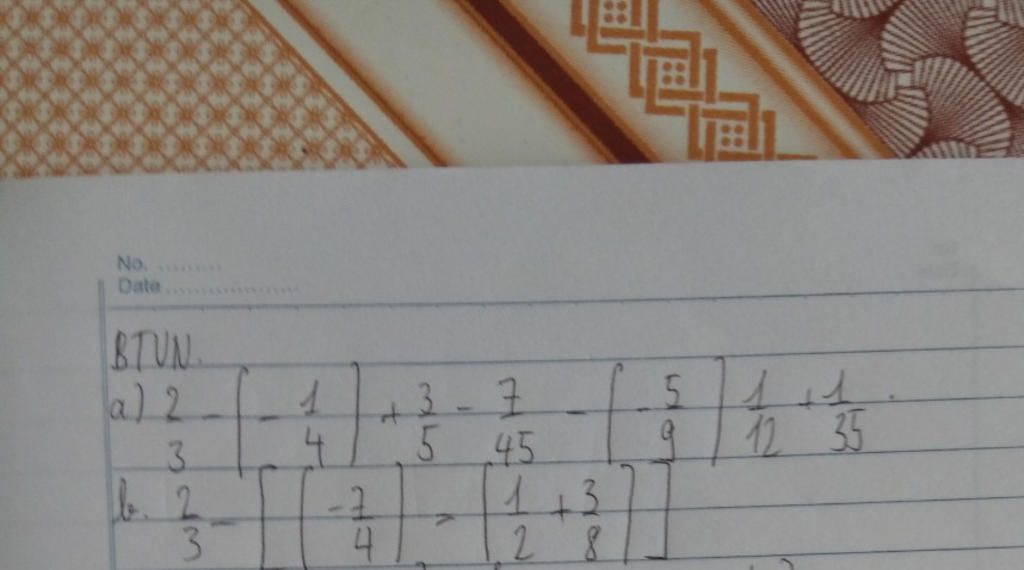 No. ..........
Date ....................
BTVN.
a) 2/3 - [-1/4] + 3/5 - 7/45 - [-5/9] 1/12 + 1/35.
b. 2/3 - [[-7/4] - [1/2 + 3/8]]